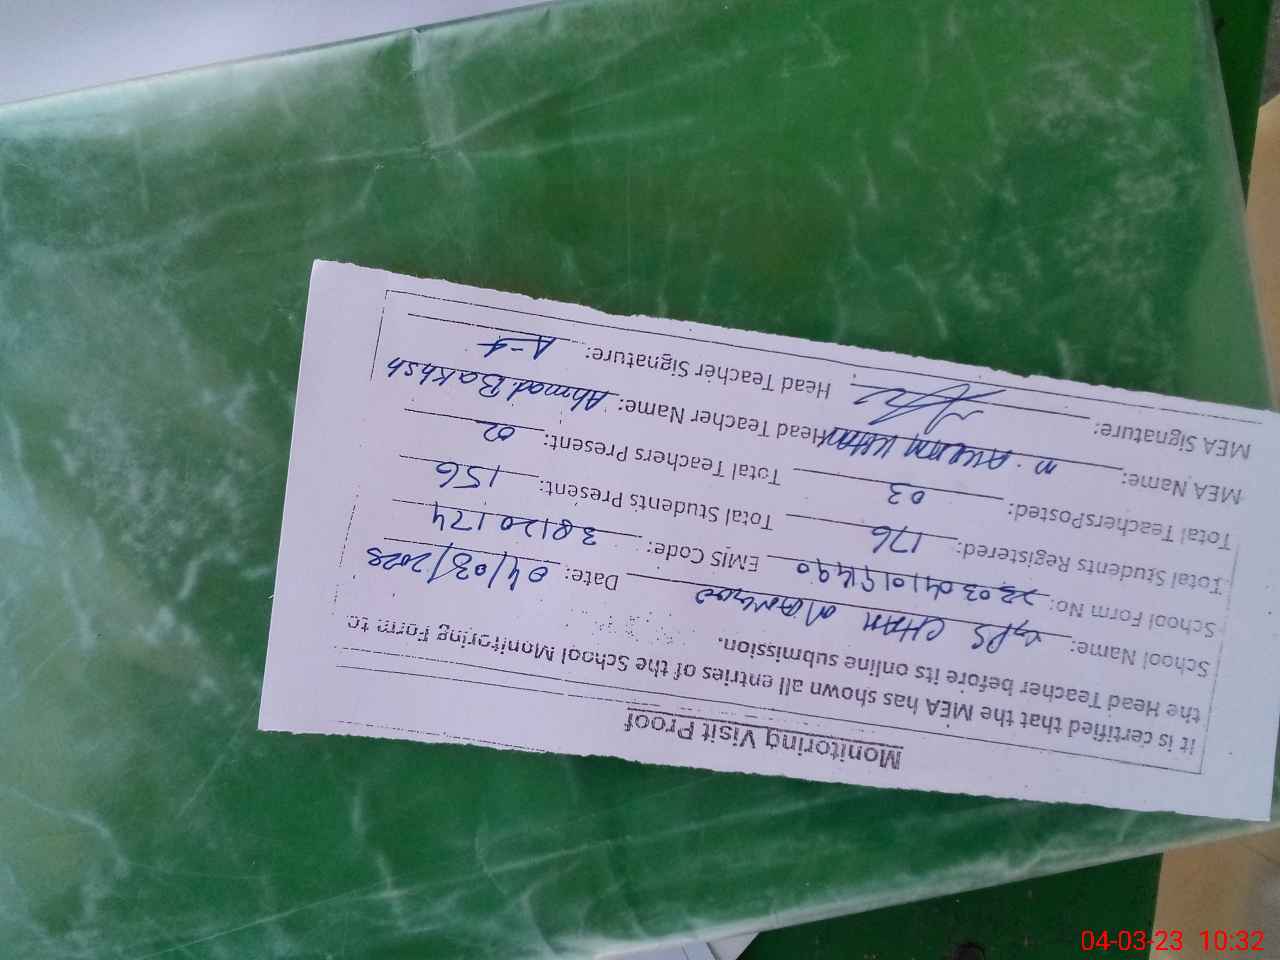 Monitoring Visit Proof
it is certified that the MEA has shown all entries of the School Monitoring Form to
the Head Teacher before its online submission.
School Name: GPS CHAH Date: 04/03/2023
School Form No: EMIS Code: 38120174
Total Students Registered: 176 Total Students Present: 156
Total TeachersPosted: 03 Total Teachers Present: 02
MEA Name: KHAN Head Teacher Name: Ahmad Bakhsh
MEA Signature: Head Teacher Signature:
04-03-23 10:32